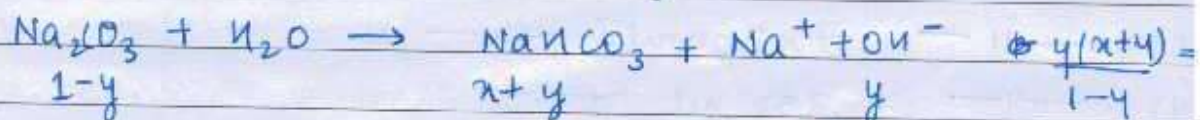 Na₂CO₃ + H₂O → NaHCO₃ + Na⁺ + OH⁻ y(x+y)/1-y =
1-y x+y y